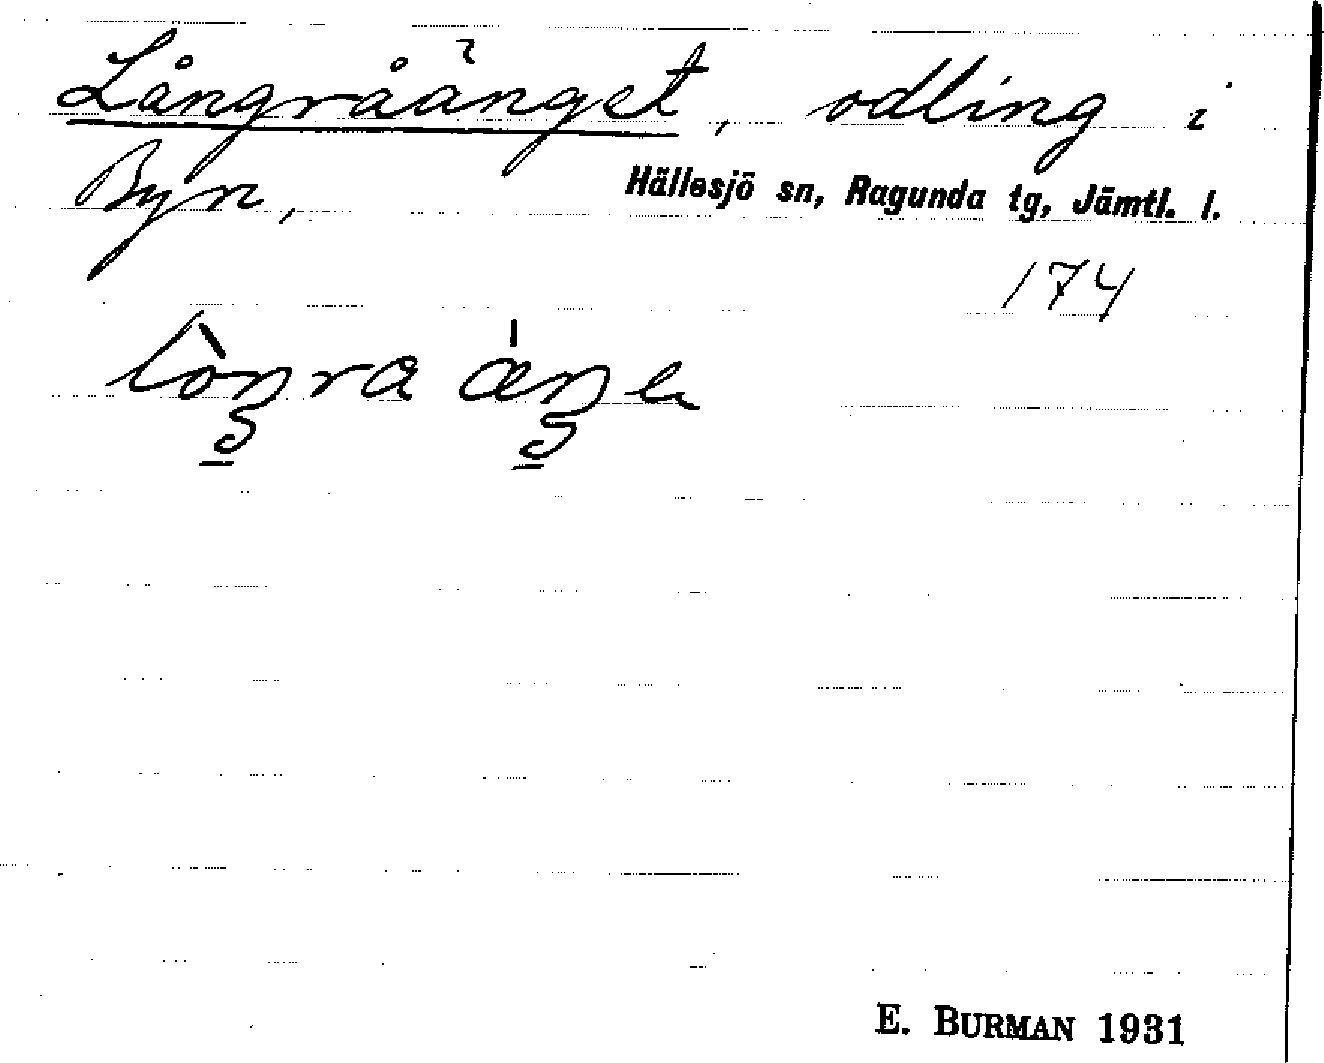 Långråänget, odling i
Byn, Hällesjö sn, Ragunda tg, Jämtl. l.
174
E. BURMAN 1931